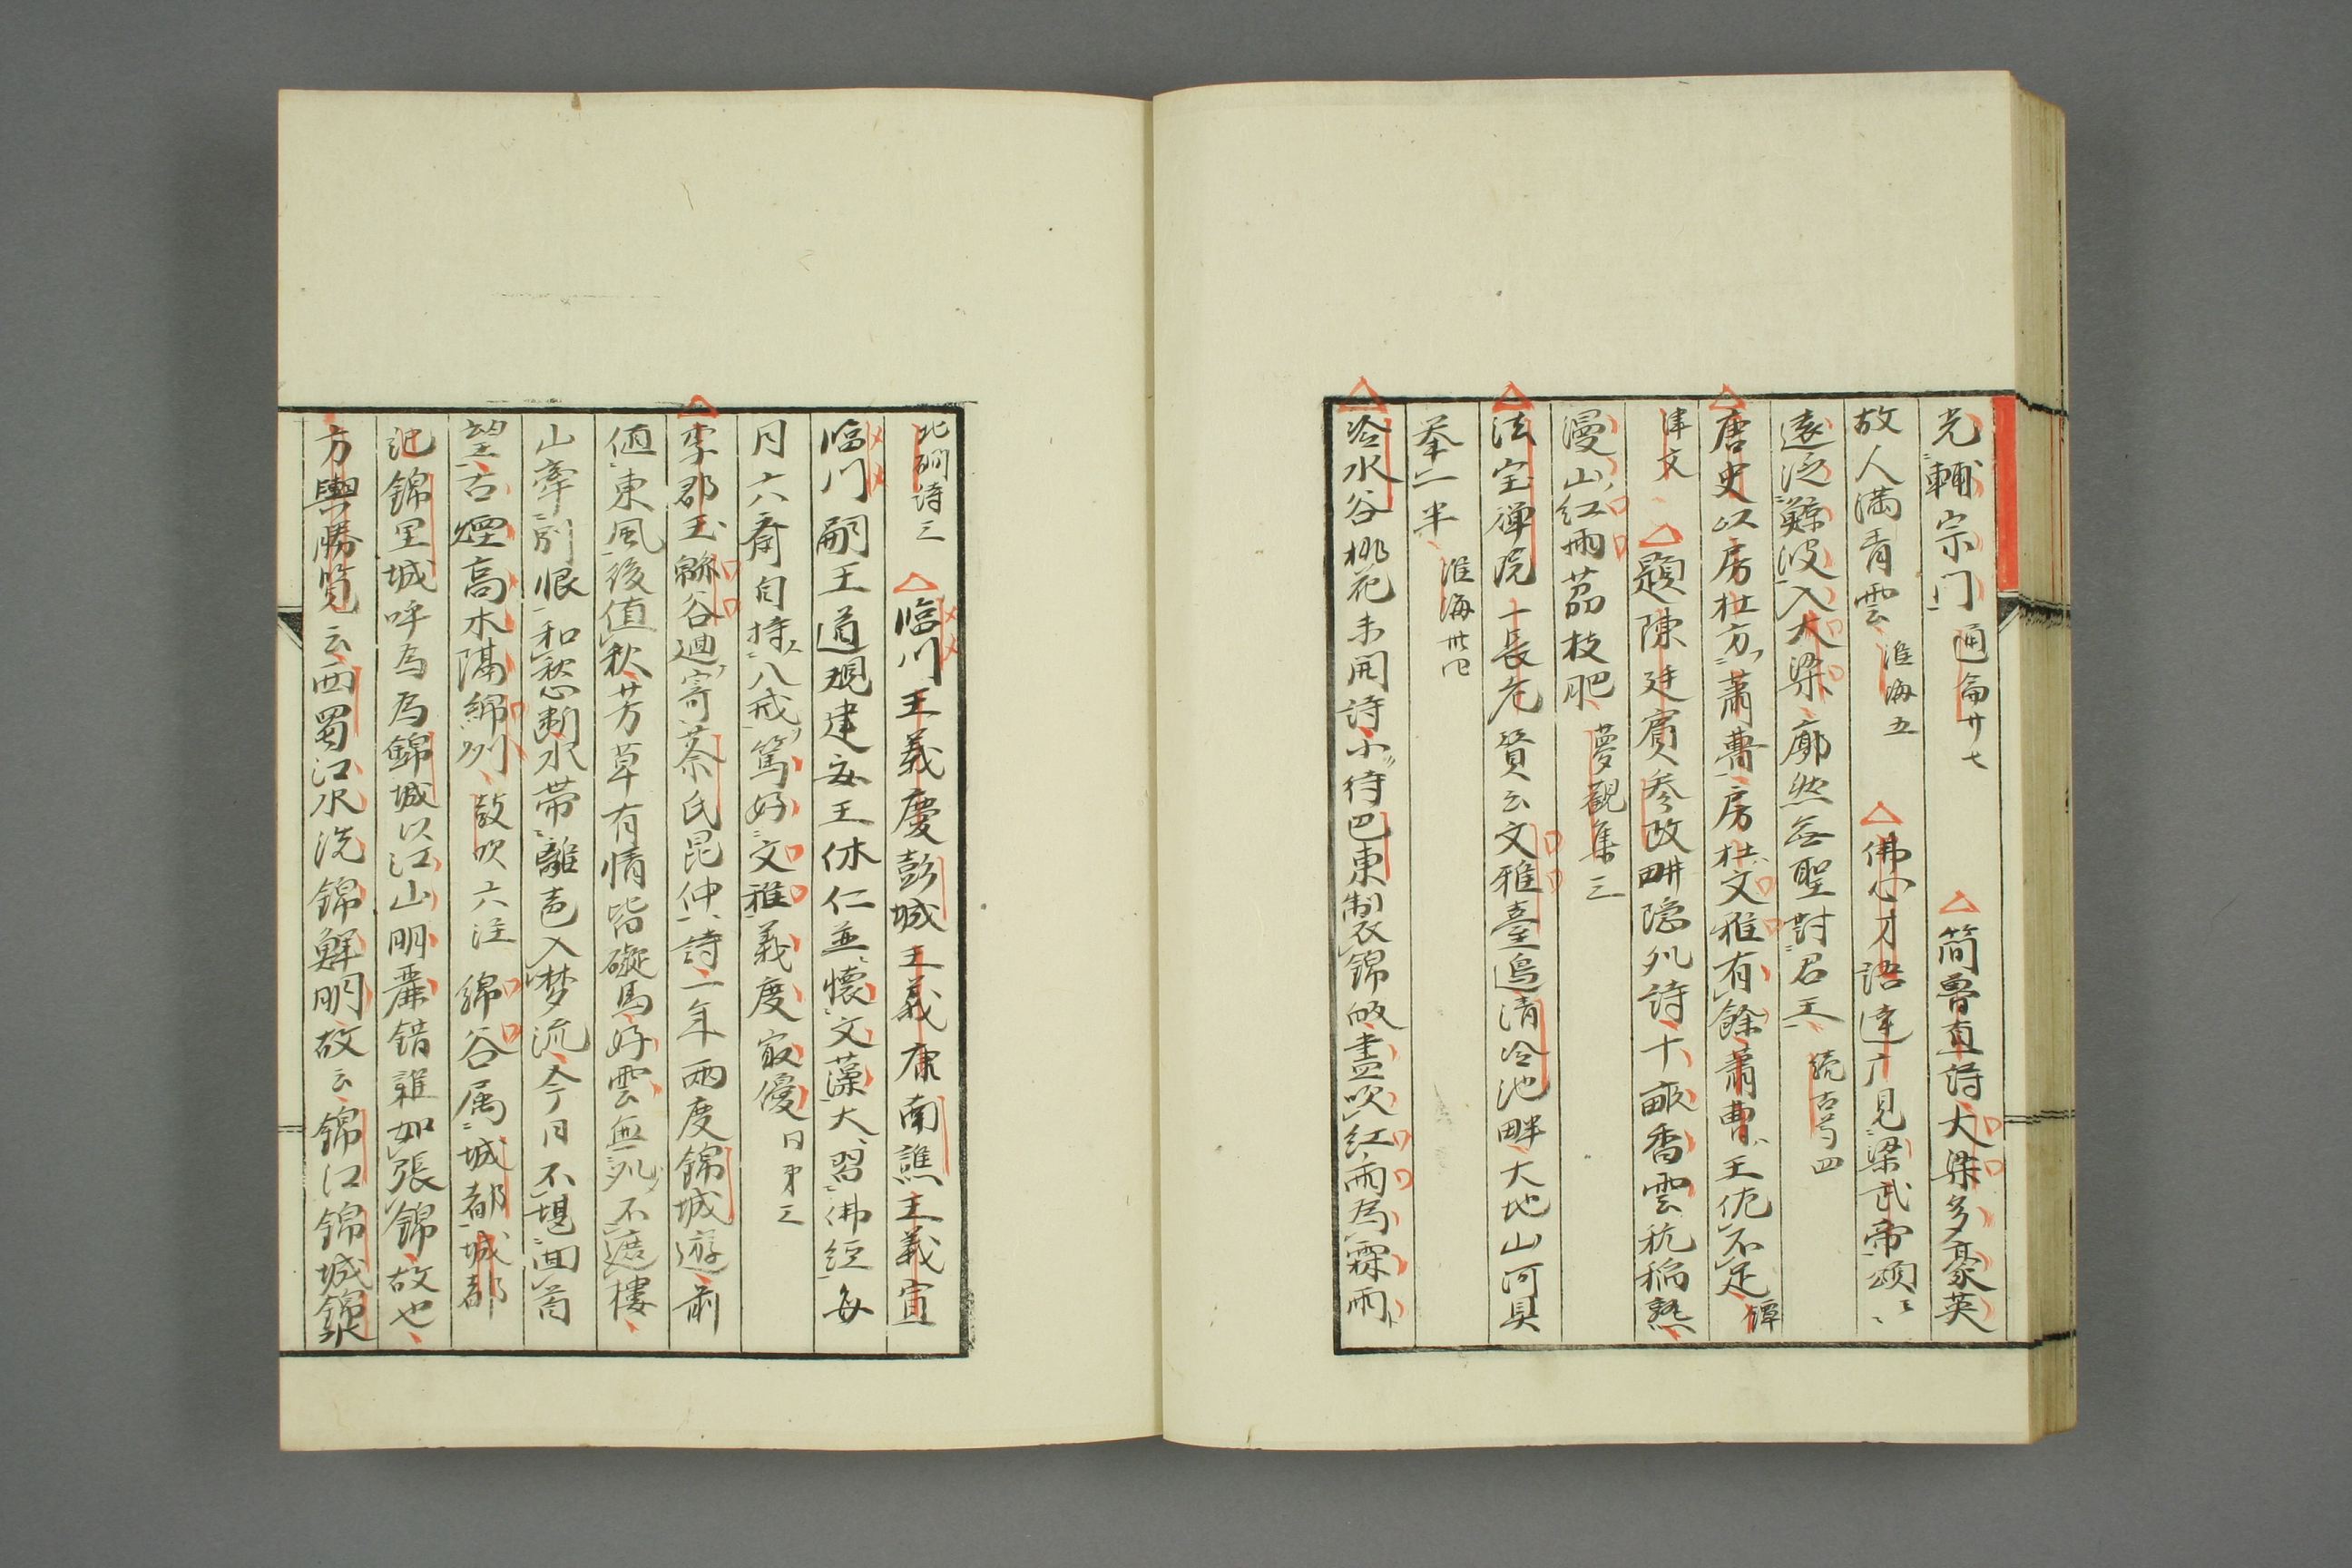 光輔宗门 通侖廾七 簡魯直詩大梁多豪英
故人満青雲 淮海五 佛心才語達广見梁武帝頌
遠泛鯨波入大梁廓然無聖對君王 続古 四
唐史以房杜方蕭曹房杜文雅有餘蕭曹王佐不足 鐔
津文 題陳廷賓參政畊隐 詩十畝香雲秔稲熟
漫山紅雨茘枝肥 夢觀集三
法宝禅院十長老賛云文雅臺邉清冷池畔大地山河具
拳一半 淮海廾四
冷水谷桃花未開詩小待巴東製錦 盡吹紅雨為霖雨
北磵詩三 臨川王義慶彭城王義康南譙王義宣
臨川嗣王道規建安王休仁並懐文藻大習佛經毎
月六斎自持八戒篤好文雅義慶最優 日才三
李郡玉緜谷迴寄蔡氏昆仲詩二年両度錦城遊前
値東風後値秋芳草有情皆礙馬好雲無処不遮樓
山牽別恨和愁断水帯離声入夢流今日不堪回首
望古煙高木隔綿州 鼓吹六注 綿谷属城都城都
記錦里城呼為為錦城以江山明麗錯雜如張錦故也
方輿勝覧云西蜀江水洗錦鮮明故云錦江錦城錦